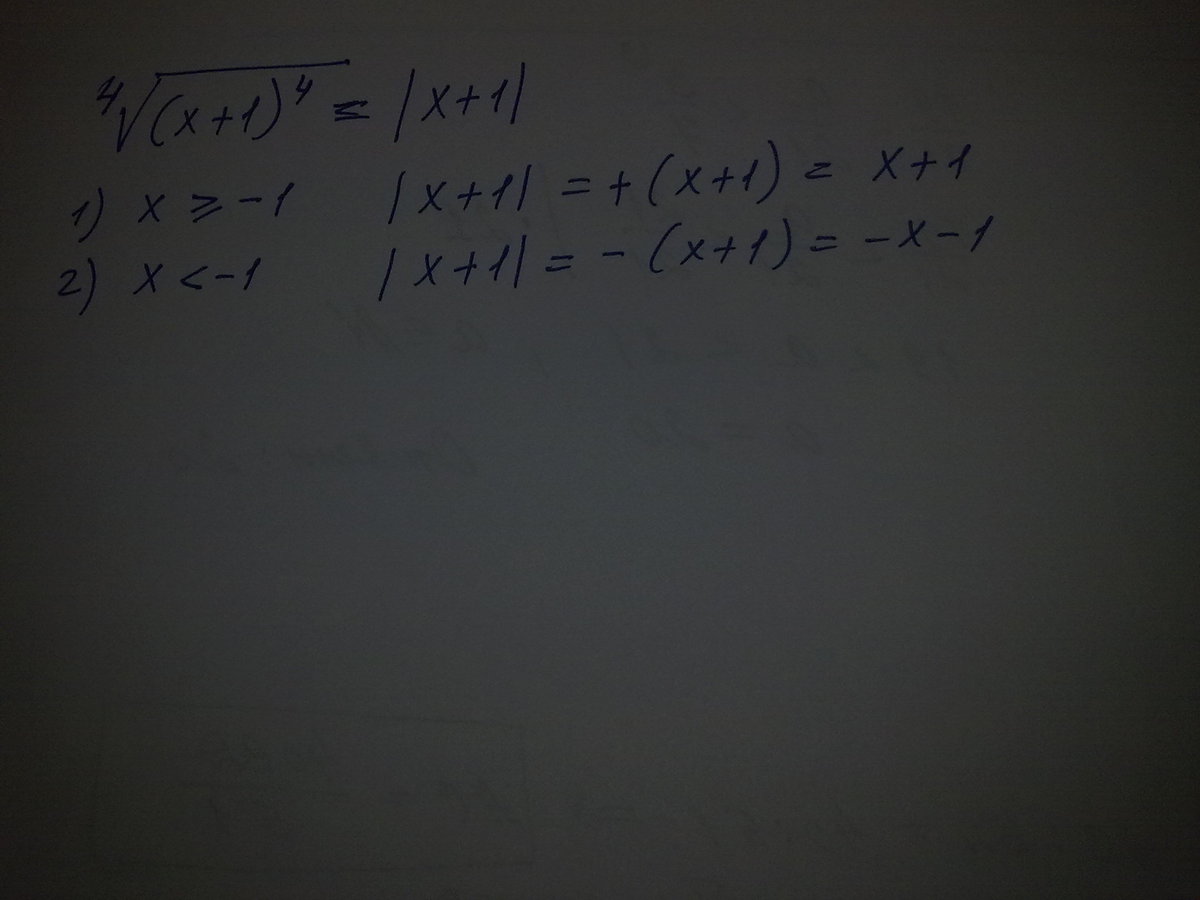 ⁴√(x+1)⁴ = |x+1|
1) x ⩾ -1 |x+1| = +(x+1) = x+1
2) x < -1 |x+1| = -(x+1) = -x-1